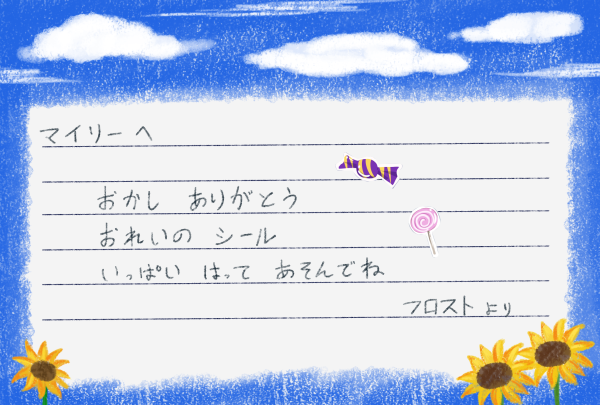 マイリーへ
おかし ありがとう
おれいの シール
いっぱい はって あそんでね
フロストより